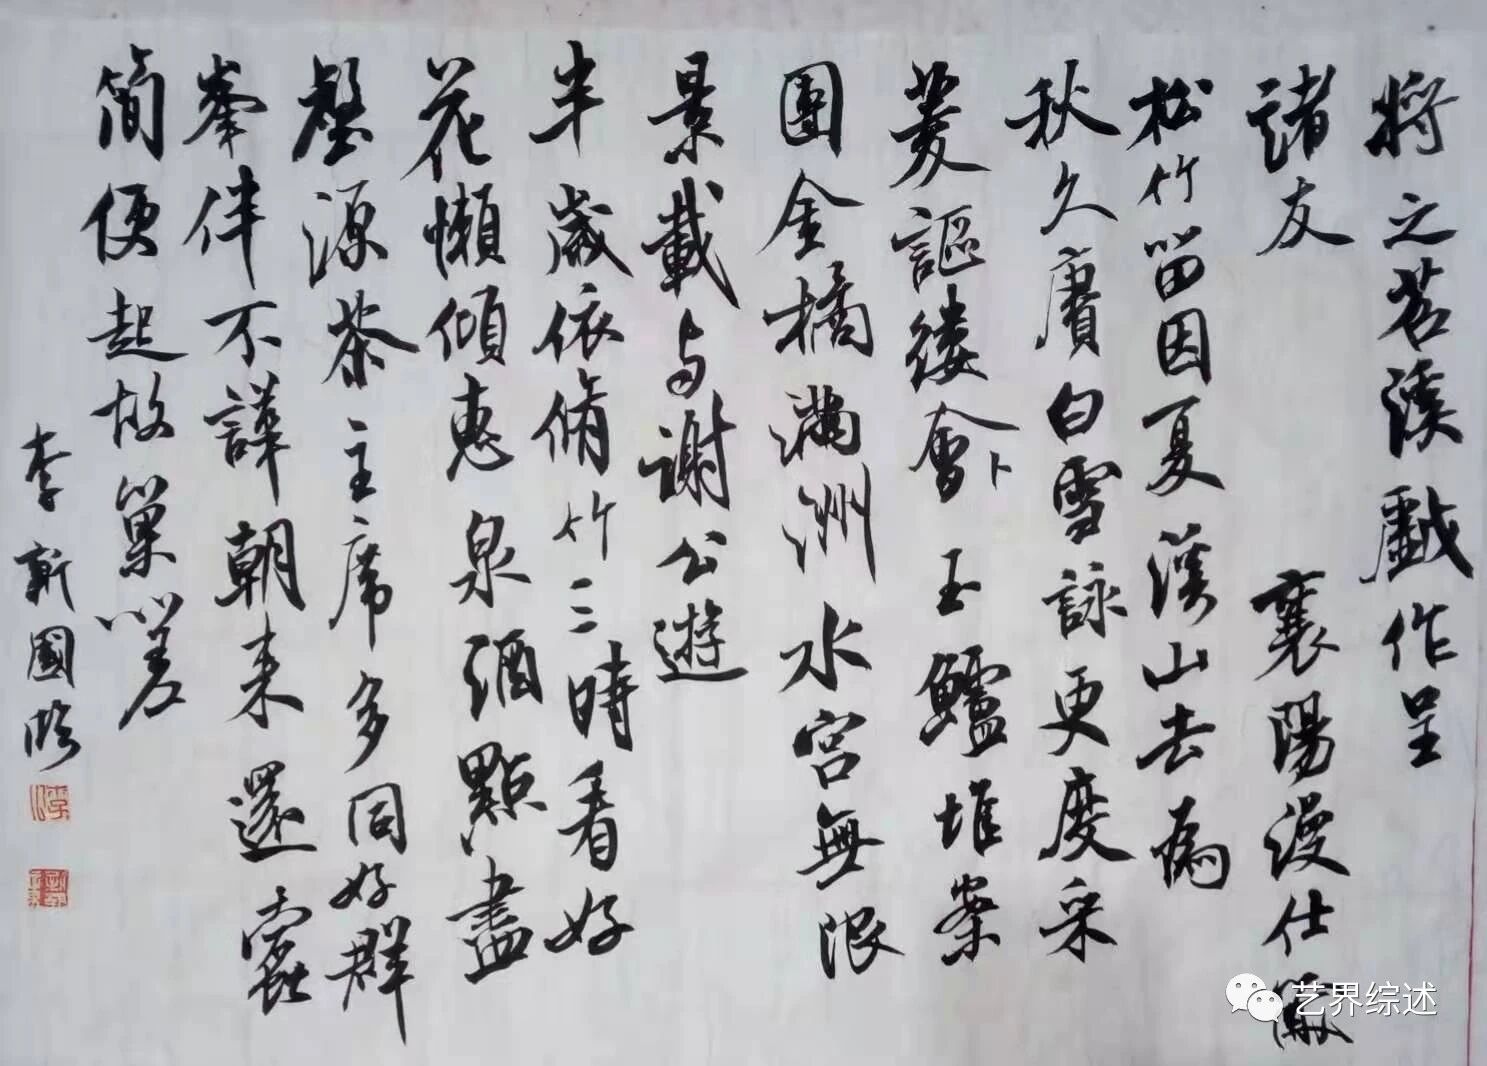 將之苕溪戲作呈
諸友 襄陽漫仕黻
松竹留因夏溪山去為
秋久賡白雪詠更度采
菱謳縷會卜玉鱸堆案
團金橘滿洲水宮無限
景載与謝公遊
半歲依脩竹三時看好
花懶傾惠泉酒點盡
壑源茶主席多同好群
峯伴不譁朝来還蠹
簡便起故巢嗟
李新國臨
艺界综述